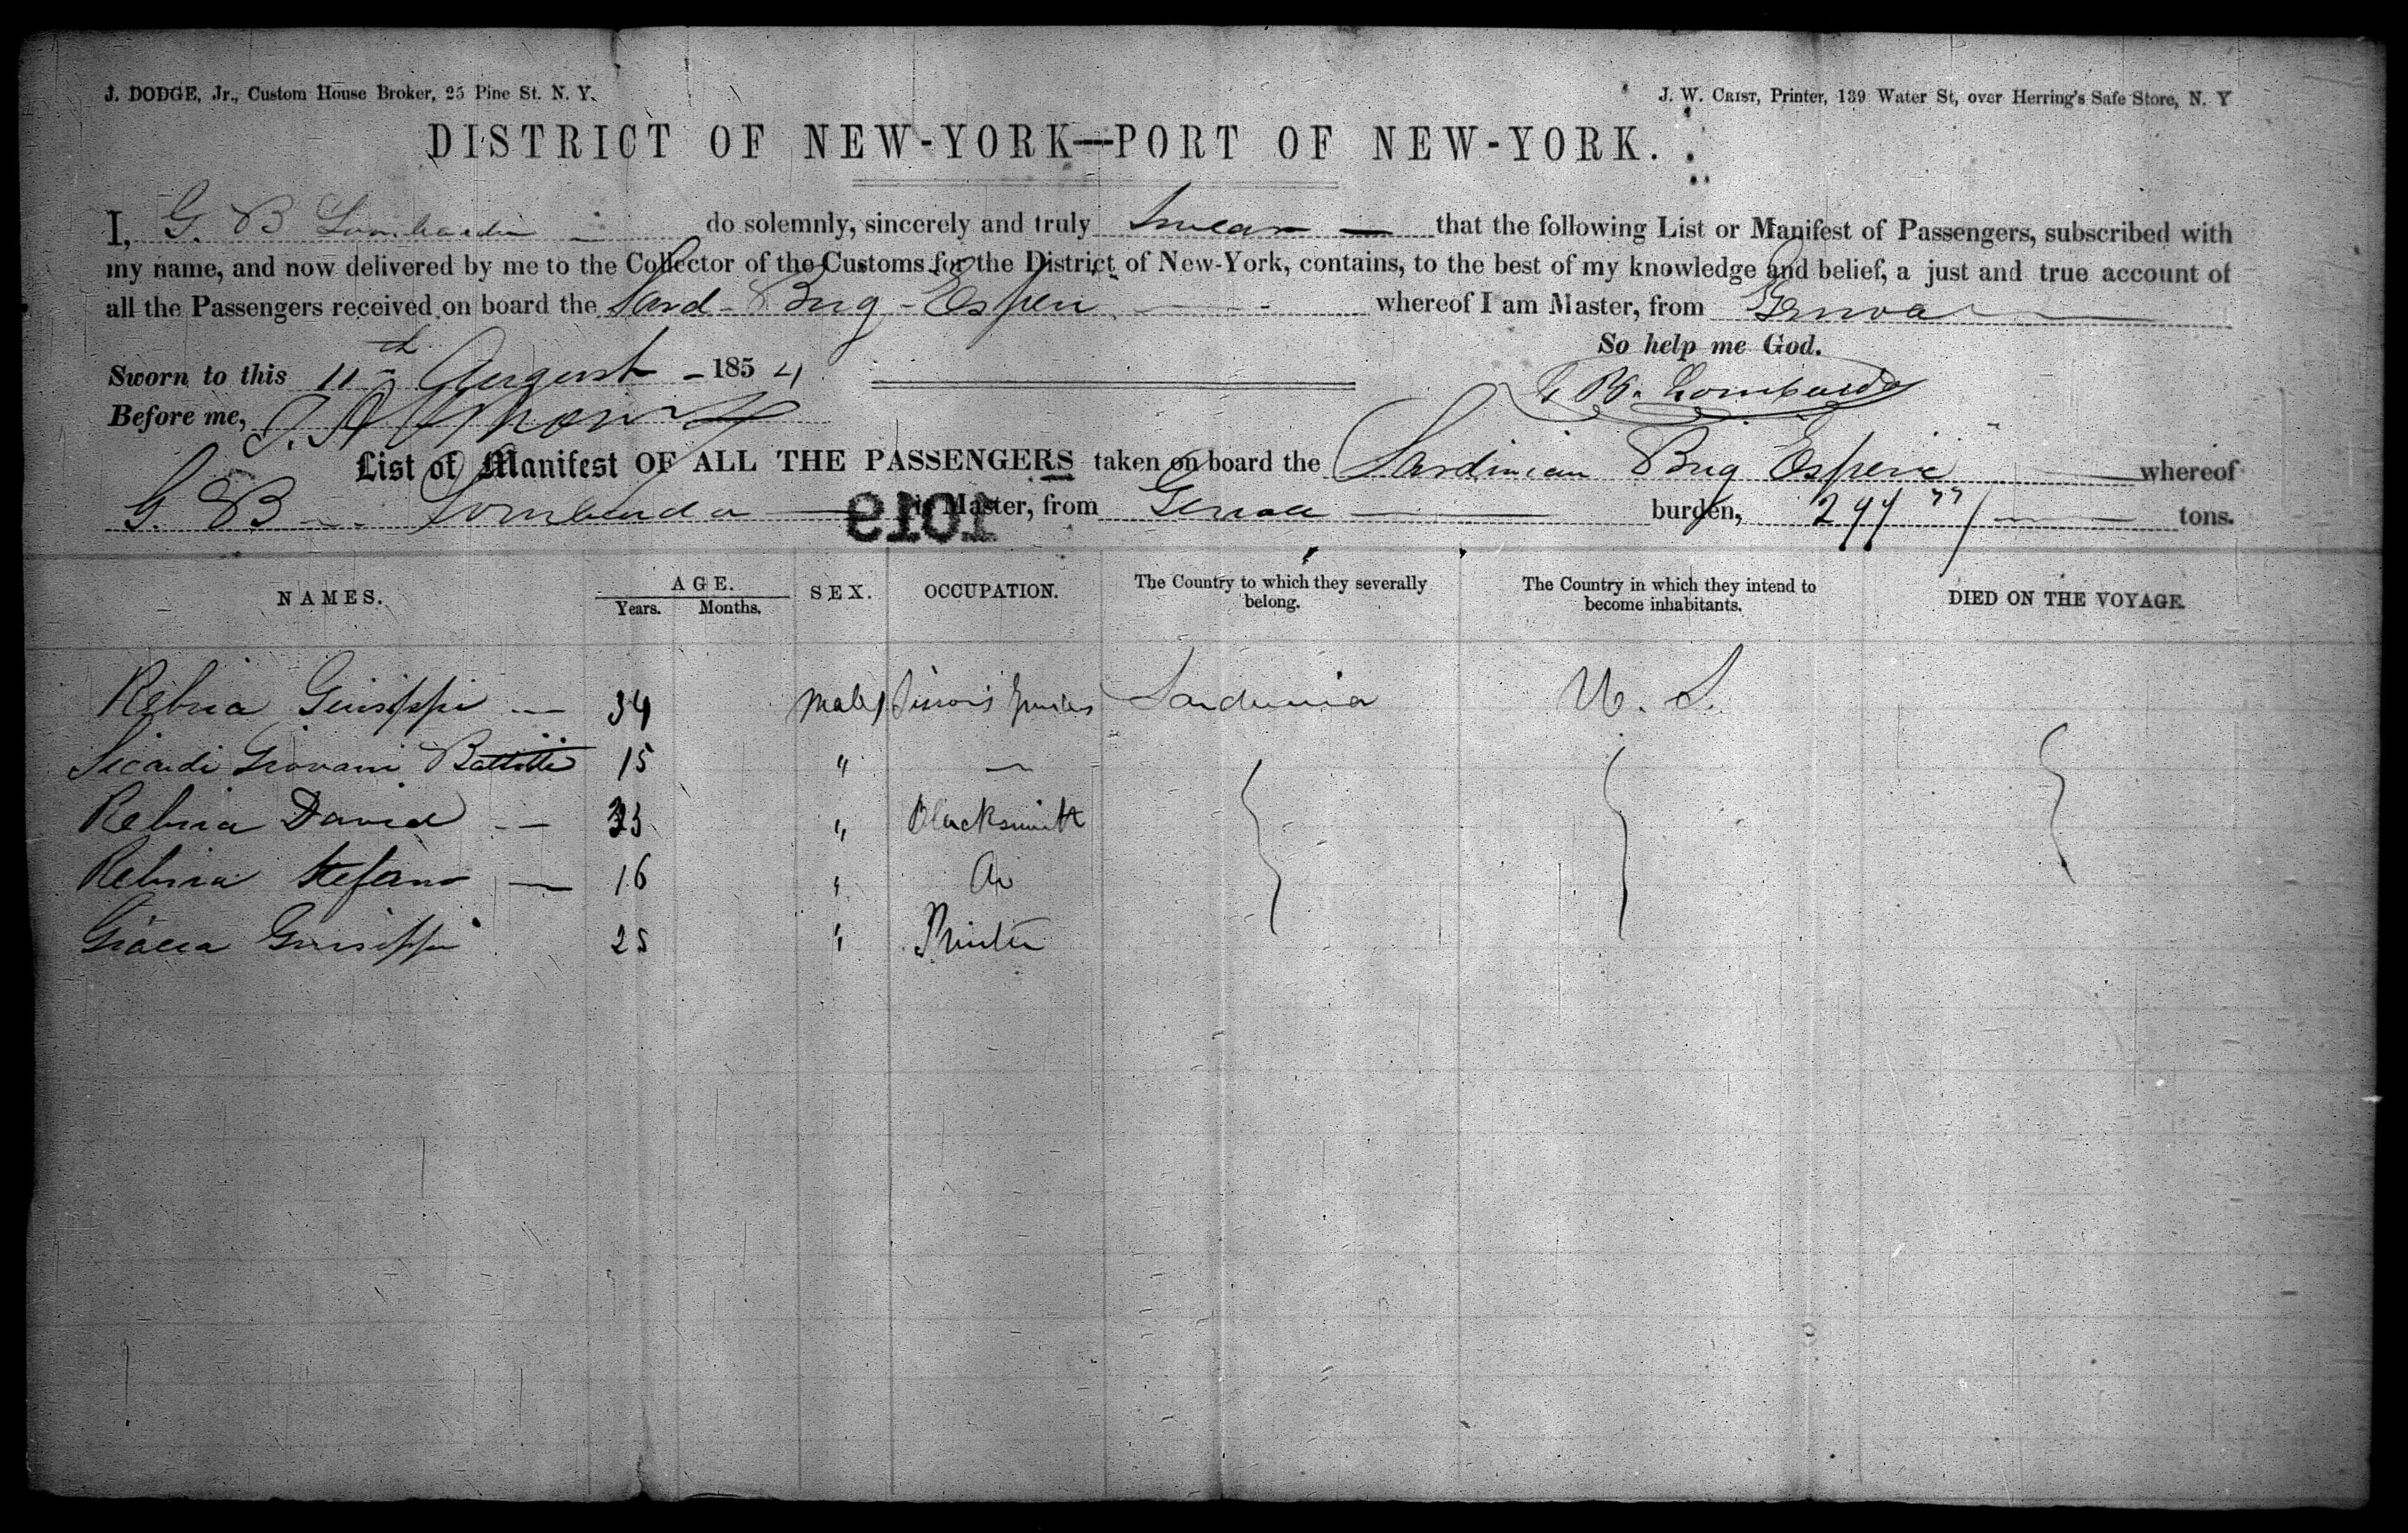 J. DODGE, Jr., Custom House Broker, 25 Pine St. N. Y.
J. W. CRIST, Printer, 139 Water St, over Herring's Safe Store, N. Y
DISTRICT OF NEW-YORK—PORT OF NEW-YORK.
I, G. B Lombardo do solemnly, sincerely and truly Swear that the following List or Manifest of Passengers, subscribed with
my name, and now delivered by me to the Collector of the Customs for the District of New-York, contains, to the best of my knowledge and belief, a just and true account of
all the Passengers received on board the Sard- Brig - whereof I am Master, from Genoa
So help me God.
Sworn to this 11th August - 1854
G B. Lombardo
Before me,
List of Manifest OF ALL THE PASSENGERS taken on board the Sardinian Brig whereof
G. B Lombardo is Master, from Genoa burden, tons.
1019
NAMES. AGE. SEX. OCCUPATION. The Country to which they severally belong. The Country in which they intend to become inhabitants. DIED ON THE VOYAGE.
Years. Months.
Giusippi 34 Male Sardinia U. S.
Sicardi Giovani Battista 15 " —
David " Blacksmith
Stefano 16 "
Giusippi 25 "